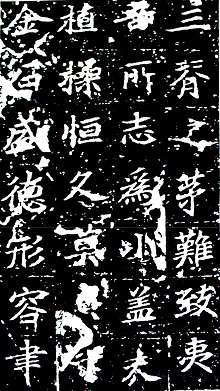 三脊之茅難致夷
所志爲小盖未
植操恒久
金石盛德形容聿